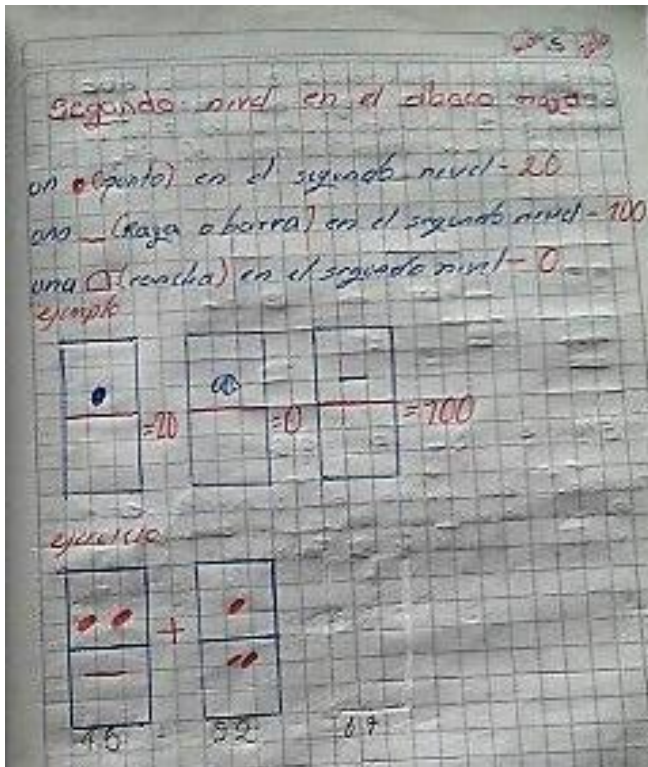 segundo nivel en el abaco maya
un (punto) en el segundo nivel - 20
una — (Raya o barra) en el segundo nivel - 100
una (concha) en el segundo nivel - 0
ejemplo
=20 =0 =100
ejercicio
+